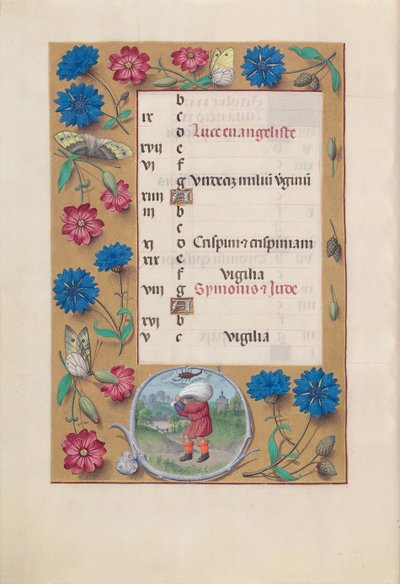 b
ix c
d Luce euangeliste
xvii e
vi f
g Vndecim miliū v̄ginū
xiiii A
iii b
c
xi d Crispini ⁊ crispiniani
xix e
f Vigilia
viii g Symonis ⁊ Jude
A
xvi b
v c Vigilia